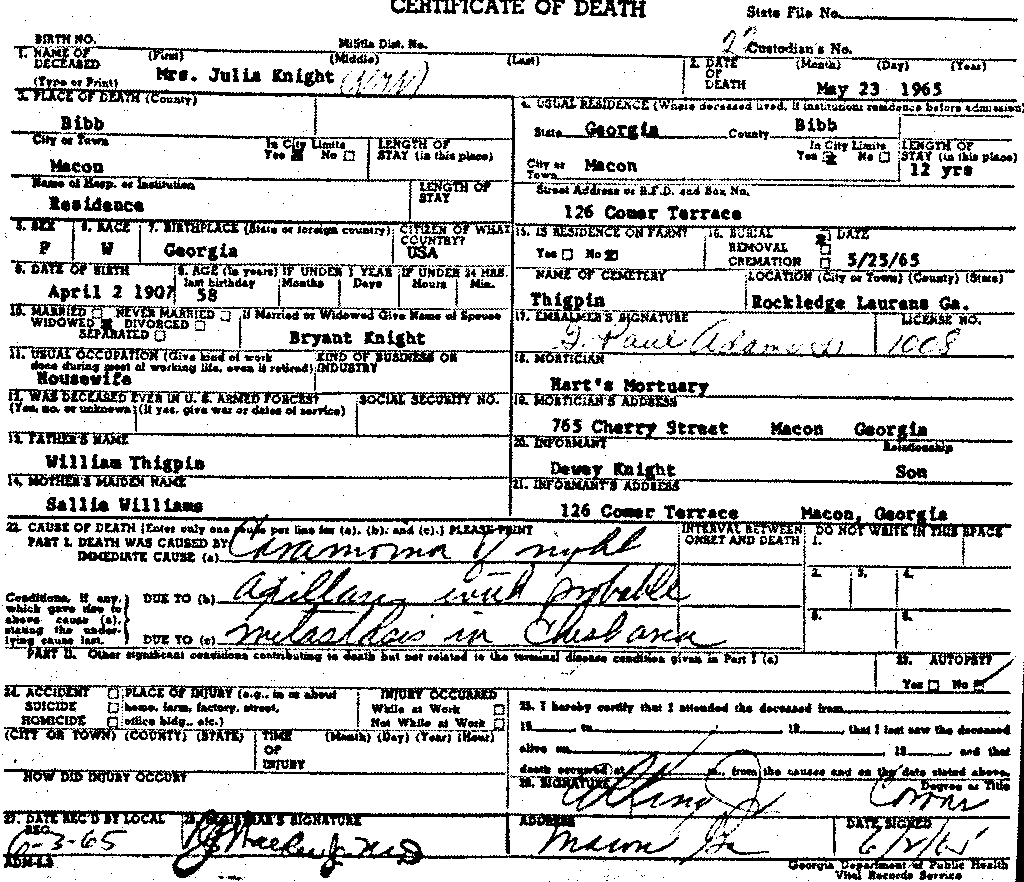 CERTIFICATE OF DEATH
State File No.
BIRTH NO.
Militia Dist. No.
Custodian's No.
1. NAME OF DECEASED (First) (Middle) (Last)
(Type or Print) Mrs. Julia Knight
2. DATE OF DEATH (Month) (Day) (Year)
May 23 1965
3. PLACE OF DEATH (County)
Bibb
4. USUAL RESIDENCE (Where deceased lived, if institution: residence before admission)
State Georgia County Bibb
City or Town In City Limits Yes No LENGTH OF STAY (in this place)
Macon
City or Town Macon In City Limits Yes No LENGTH OF STAY (in this place)
12 yrs
Name of Hosp. or Institution LENGTH OF STAY
Residence
Street Address or R.F.D. and Box No.
126 Comer Terrace
5. SEX 6. RACE 7. BIRTHPLACE (State or foreign country) CITIZEN OF WHAT COUNTRY?
F W Georgia USA
15. IS RESIDENCE ON FARM? Yes No
16. BURIAL REMOVAL CREMATION DATE
5/25/65
8. DATE OF BIRTH 9. AGE (In years last birthday) IF UNDER 1 YEAR Months Days IF UNDER 24 HRS. Hours Min.
April 2 1907 58
NAME OF CEMETERY LOCATION (City or Town) (County) (State)
Thigpin Rockledge Laurens Ga.
10. MARRIED NEVER MARRIED WIDOWED DIVORCED SEPARATED
If Married or Widowed Give Name of Spouse
Bryant Knight
17. EMBALMER'S SIGNATURE LICENSE NO.
J. Paul Adams 1008
11. USUAL OCCUPATION (Give kind of work done during most of working life, even if retired) KIND OF BUSINESS OR INDUSTRY
Housewife
18. MORTICIAN
Hart's Mortuary
12. WAS DECEASED EVER IN U. S. ARMED FORCES? SOCIAL SECURITY NO.
(Yes, no. or unknown) (If yes, give war or dates of service)
19. MORTICIAN'S ADDRESS
765 Cherry Street Macon Georgia
13. FATHER'S NAME
William Thigpin
20. INFORMANT Relationship
Dewey Knight Son
14. MOTHER'S MAIDEN NAME
Sallie Williams
21. INFORMANT'S ADDRESS
126 Comer Terrace Macon, Georgia
22. CAUSE OF DEATH (Enter only one cause per line for (a), (b), and (c).) PLEASE PRINT
INTERVAL BETWEEN ONSET AND DEATH
DO NOT WRITE IN THIS SPACE
1.
2. 3. 4.
5. 6.
PART I. DEATH WAS CAUSED BY
IMMEDIATE CAUSE (a) of right
Conditions, if any, which gave rise to above cause (a), stating the underlying cause last.
DUE TO (b) with probable
DUE TO (c) in Chest area
PART II. Other significant conditions contributing to death but not related to the terminal disease condition given in Part I (a)
23. AUTOPSY?
Yes No
24. ACCIDENT SUICIDE HOMICIDE
PLACE OF INJURY (e.g., in or about home, farm, factory, street, office bldg., etc.)
INJURY OCCURRED
While at Work
Not While at Work
(CITY OR TOWN) (COUNTY) (STATE)
TIME OF INJURY (Month) (Day) (Year) (Hour)
HOW DID INJURY OCCUR?
25. I hereby certify that I attended the deceased from
19 to 19 , that I last saw the deceased
alive on 19 and that
death occurred at m., from the causes and on the date stated above.
26. SIGNATURE Degree or Title
27. DATE REC'D BY LOCAL REG.
6-3-65
28. REGISTRAR'S SIGNATURE
ADDRESS
Macon Ga
DATE SIGNED
Georgia Department of Public Health
Vital Records Service